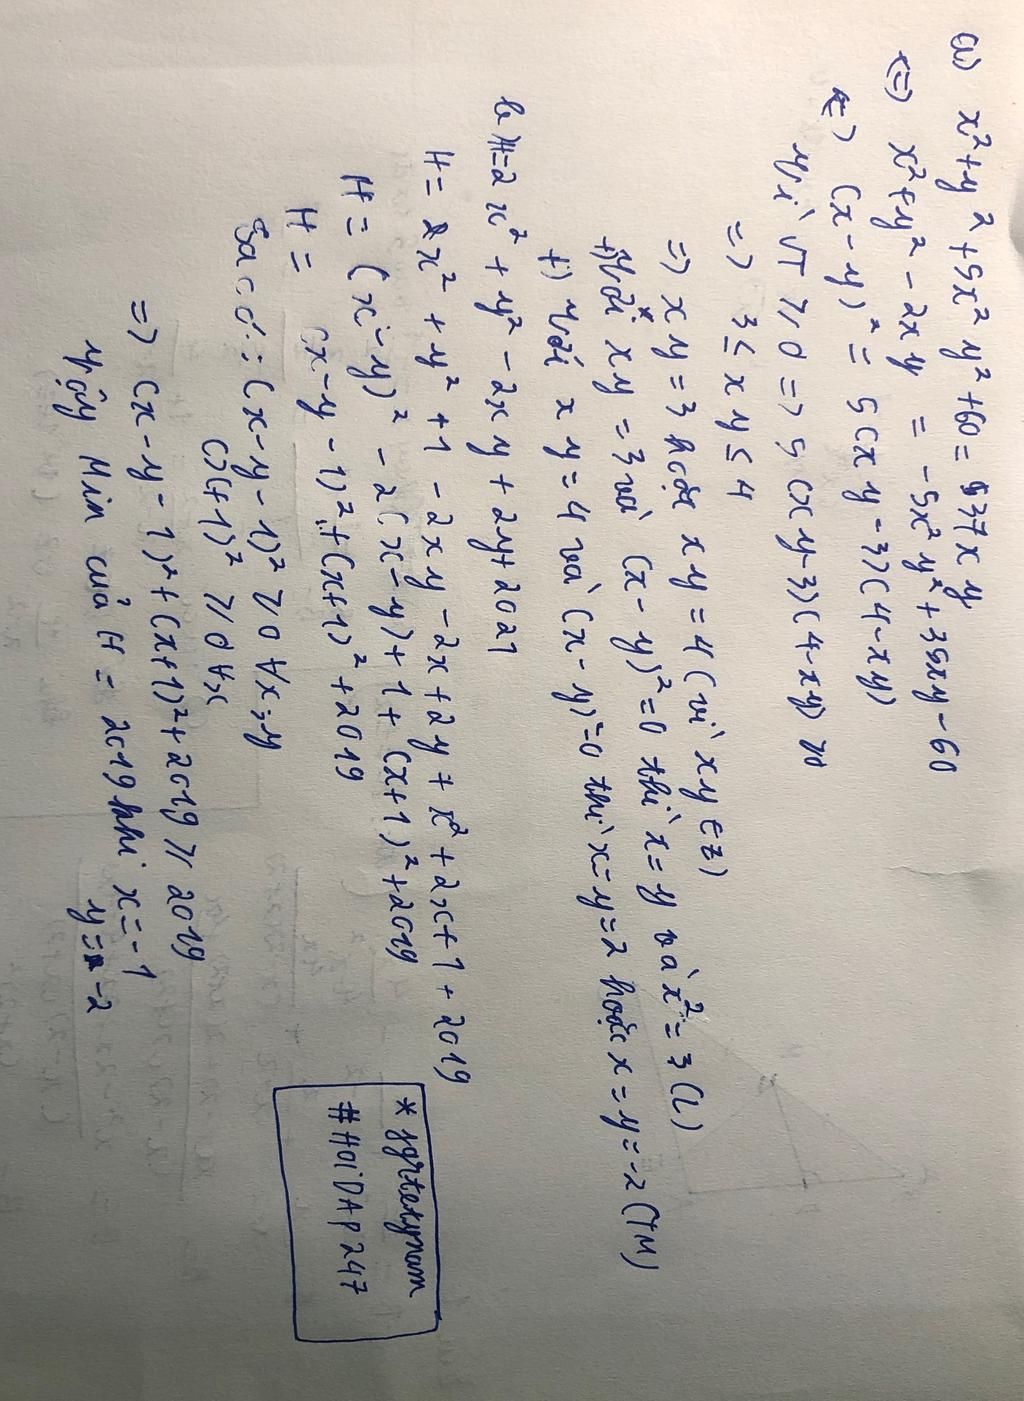 a) x² + y² + 5x²y² + 60 = 37xy
<=> x² + y² - 2xy = -5x²y² + 35xy - 60
<=> (x - y)² = 5(xy - 3)(4 - xy)
Vì VT ≥ 0 => 5(xy - 3)(4 - xy) ≥ 0
=> 3 ≤ xy ≤ 4
=> xy = 3 hoặc xy = 4 (vì xy ∈ Z)
+) Với xy = 3 và (x - y)² = 0 thì x = y và x² = 3 (L)
+) Với xy = 4 và (x - y)² = 0 thì x = y = 2 hoặc x = y = -2 (TM)
b) H = 2x² + y² - 2xy + 2y + 2021
H = x² + y² + 1 - 2xy - 2x + 2y + x² + 2x + 1 + 2019
H = (x - y)² - 2(x - y) + 1 + (x + 1)² + 2019
H = (x - y - 1)² + (x + 1)² + 2019
Ta có: (x - y - 1)² ≥ 0 ∀x;y
(x + 1)² ≥ 0 ∀x
=> (x - y - 1)² + (x + 1)² + 2019 ≥ 2019
Vậy Min của H = 2019 khi x = -1
y = -2
#HOIDAP247